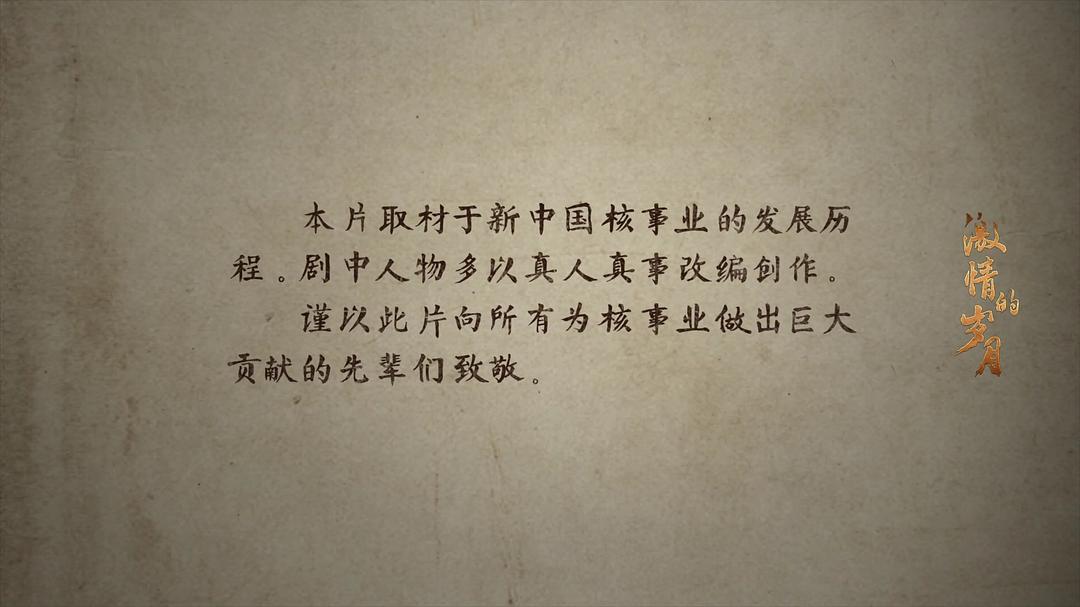 本片取材于新中国核事业的发展历
程。剧中人物多以真人真事改编创作。
谨以此片向所有为核事业做出巨大
贡献的先辈们致敬。
激情的岁月